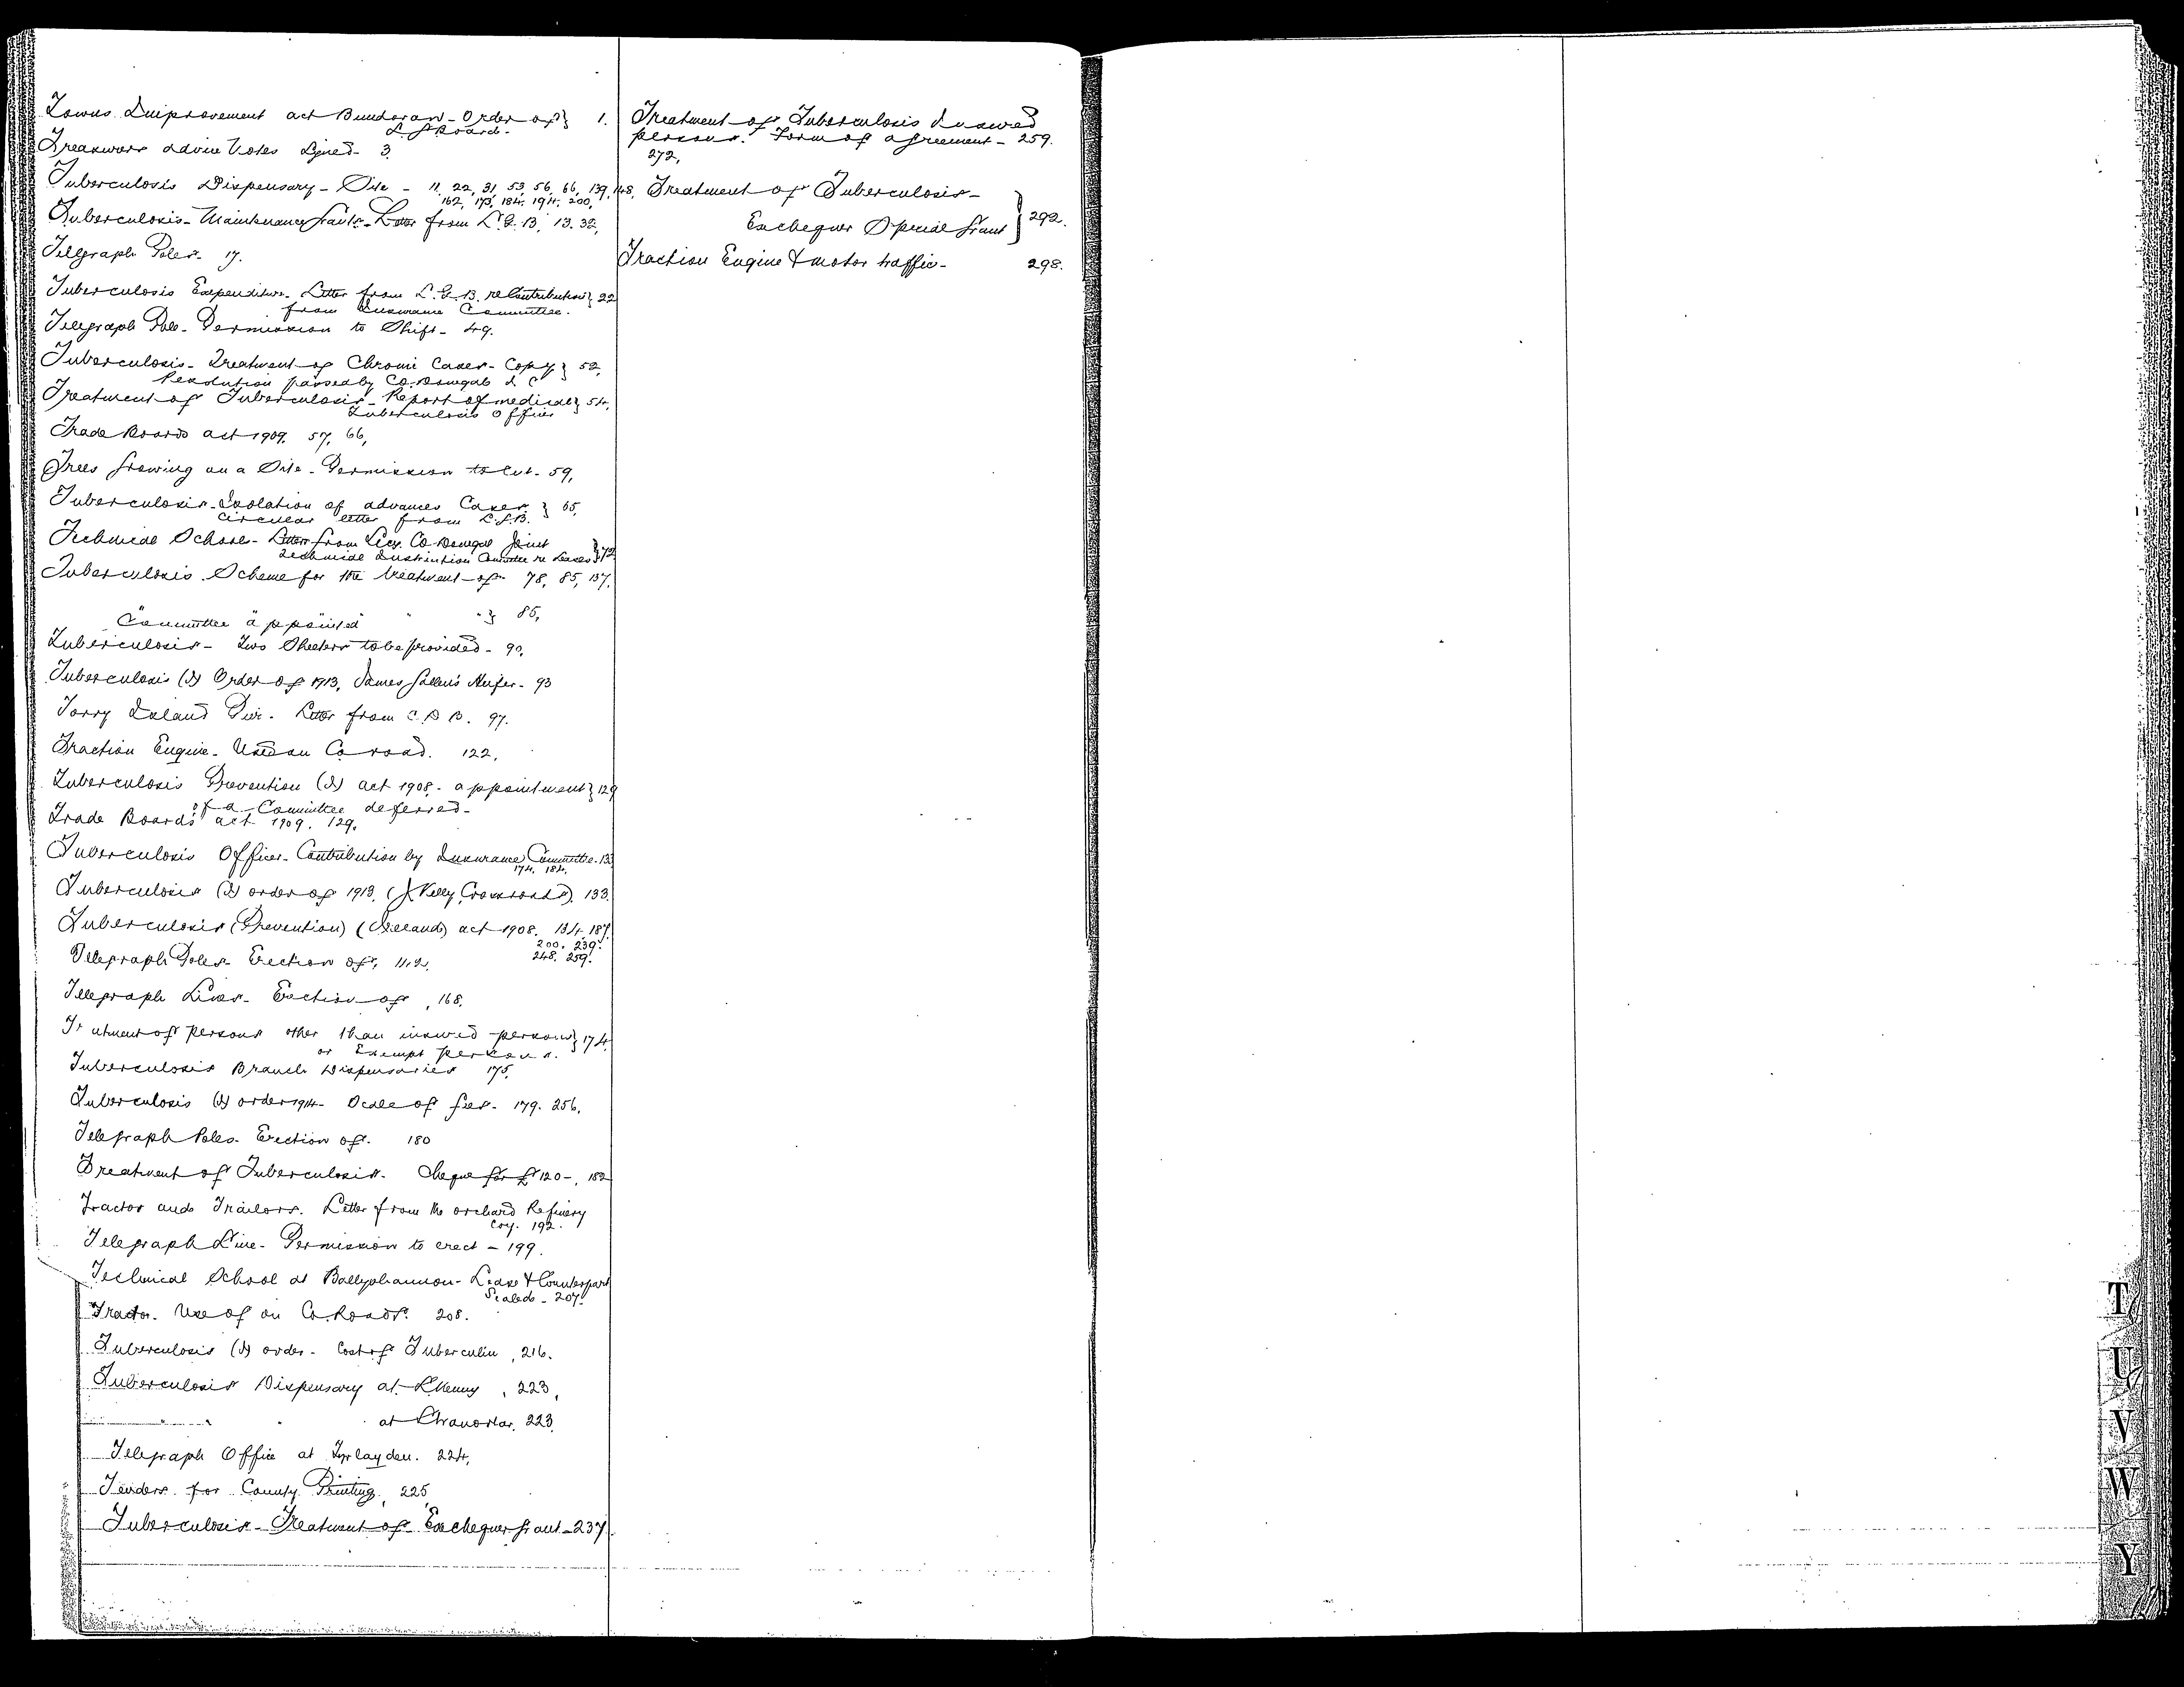 Towns Improvement act Bundoran - Order of } 1.
L. G. Board -
Treasurers advice Notes Signed - 3.
Tuberculosis Dispensary - Site - 11, 22, 31, 53, 56, 66, 139, 148,
162, 173, 184, 194, 200,
Tuberculosis - Maintenance Grants - Letter from L. G. B. 13. 32,
Telegraph Poles - 17.
Tuberculosis Expenditure - Letter from L. G. B. re Contribution } 22
from Insurance Committee.
Telegraph Pole - Permission to Shift - 49.
Tuberculosis - Treatment of Chronic Cases - Copy } 52,
Resolution passed by Co. Donegal I C
Treatment of Tuberculosis - Report of medical } 54,
Tuberculosis Officer
Trade Boards act 1909. 57, 66,
Trees Growing on a Site - Permission to Cut - 59,
Tuberculosis - Isolation of advances Cases } 65,
Circular letter from L. G. B.
Technical School - Letter from Secy. Co Donegal Joint
Technical Instruction Committee re Leases } 72
Tuberculosis Scheme for the treatment of 78, 85, 137,
Committee appointed " " } 85,
Tuberculosis - Two Shelters to be provided - 90,
Tuberculosis (I) Order of 1913, James Gallen's Heifer - 93
Torry Island Pier - Letter from C. D. B. 97.
Traction Engine - Used on Co road. 122,
Tuberculosis Prevention (I) act 1908 - appointment } 129
of a Committee deferred -
Trade Boards act 1909. 129.
Tuberculosis Officer - Contribution by Insurance Committee - 133
174. 184.
Tuberculosis (I) order of 1913. (J. Kelly, Crossroads). 133.
Tuberculosis (Prevention) (Ireland) act 1908. 134, 187.
200. 239.
Telegraph Poles - Erection of, 142. 248. 259.
Telegraph Lines - Erection of, 168.
Tr atment of Persons other than insured persons } 174.
or Exempt persons.
Tuberculosis Branch Dispensaries 175.
Tuberculosis (I) order 1914 - Scale of fees - 179. 256.
Telegraph Poles - Erection of. 180
Treatment of Tuberculosis - Cheque for £120 -, 182
Tractor and Trailors. Letter from the orchard Refinery
Coy. 192.
Telegraph Line - Permission to erect - 199.
Technical School at Ballyshannon - Lease & Counterpart
Sealed - 207.
Tractor. Use of on Co. Roads. 208.
Tuberculosis (I) order - Cost of Tuberculin, 216.
Tuberculosis Dispensary at L'Kenny, 223,
" " " at Stranorlar. 223.
Telegraph Office at 224,
Tenders for County Printing. 225,
Tuberculosis - Treatment of Exchequer Grant - 237
Treatment of Tuberculosis Insured
persons. Form of agreement - 259.
272,
Treatment of Tuberculosis -
Exchequer Special Grant } 292.
Traction Engine & motor traffic - 298.
T
U
V
W
Y